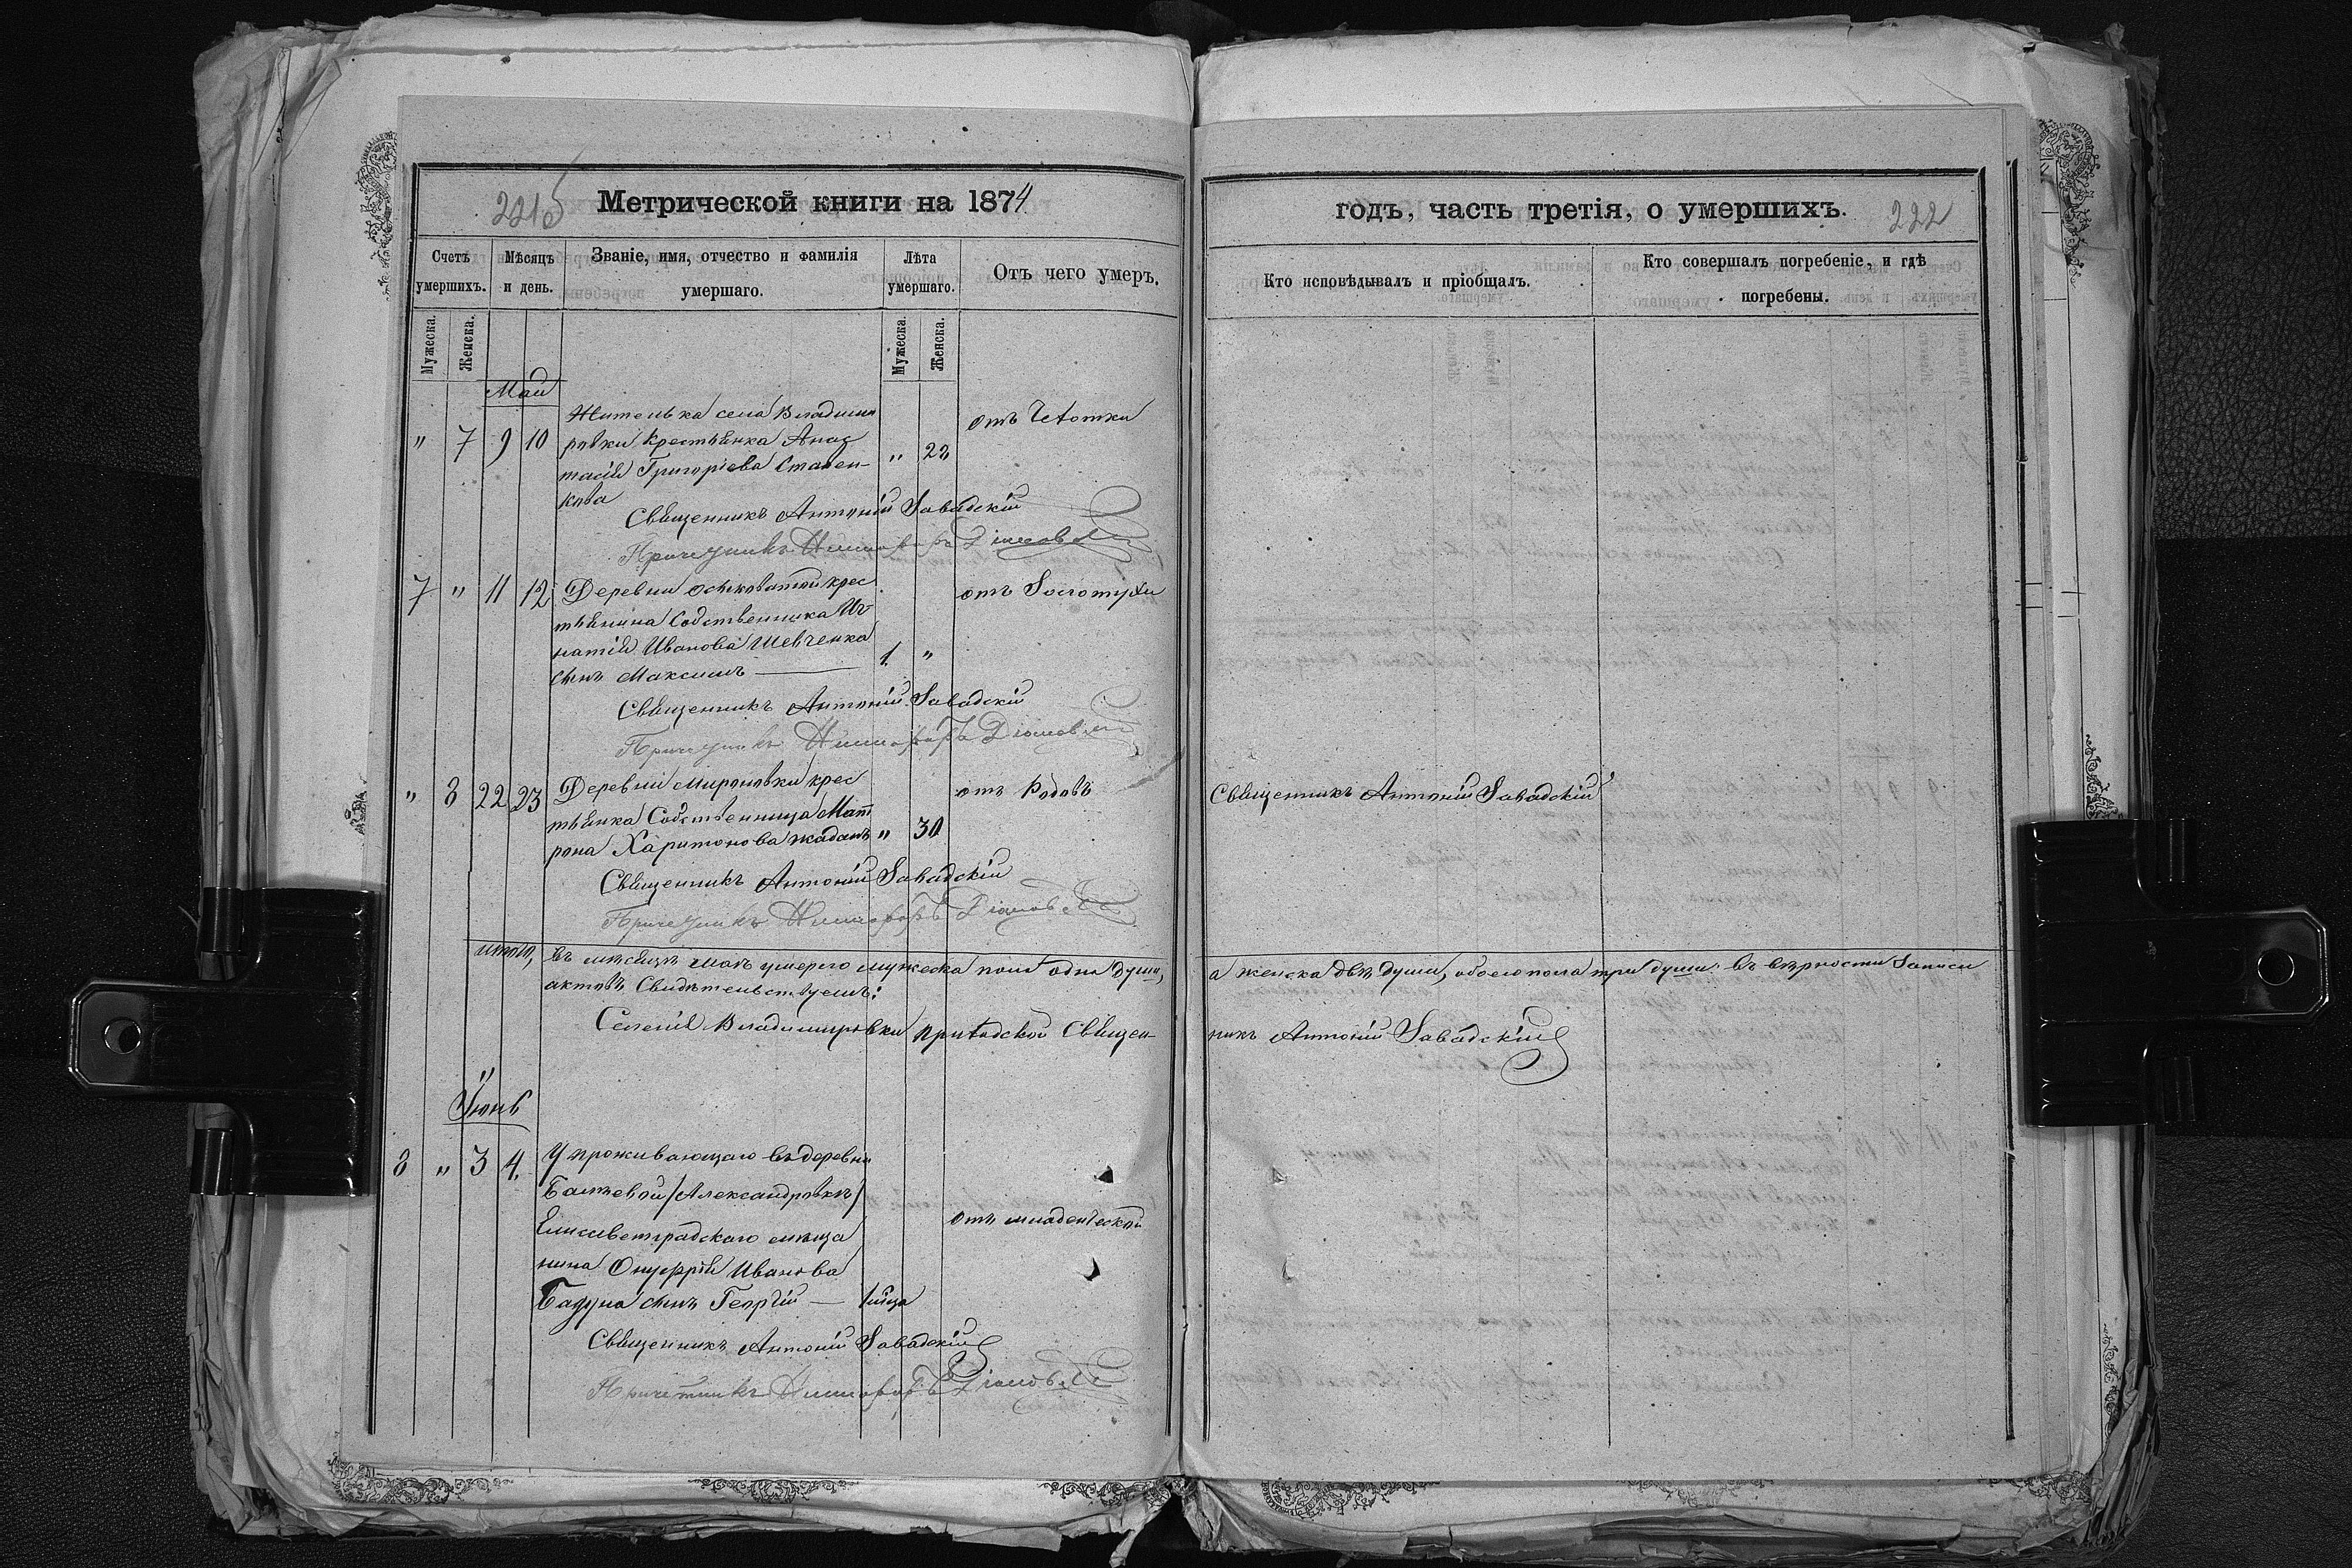 221б
Метрической книги на 1874
годъ, часть третія, о умершихъ.
222
Счетъ умершихъ.
Мѣсяцъ и день.
Званіе, имя, отчество и фамилія умершаго.
Лѣта умершаго.
Отъ чего умеръ.
Кто исповѣдывалъ и пріобщалъ.
Кто совершалъ погребеніе, и гдѣ погребены.
Мужеска.
Женска.
Мужеска.
Женска.
Май
" 7 9 10
Жителька села Владими
ровки крестьянка Анас
тасія Григоріева Стапен-
кова
" 22
отъ Чахотки
Священникъ Антоній Завадскій
Причетникъ Никифоръ
7 " 11 12
Деревни Островатой крес
тьянина Собственника Иг
натія Иванова Шевченка
сынъ Максимъ
1. "
отъ Золотухи
Священникъ Антоній Завадскій
Причетникъ Никифоръ
" 8 22 23
Деревни Мироновки крес
тьянка Собственница Мат
рона Харитонова Жаданъ
" 30
отъ Родовъ
Священникъ Антоній Завадскій
Священникъ Антоній Завадскій
Причетникъ Никифоръ
итого, въ мѣсяцѣ Маѣ умерло мужеска пола одна душа,
а женска двѣ души, обоего пола три души. Въ вѣрности записи
актовъ Свидѣтельствуемъ:
Селенія Владимировки приходской Священ-
никъ Антоній Завадскій
Іюнь
8 " 3 4.
У проживающаго въ деревни
/Александровкѣ/
Елисаветградскаго мѣща
нина Онуфрія Иванова
сынъ Георгій —
1 мѣсца
отъ младенческой
Священникъ Антоній Завадскій
Причетникъ Никифоръ